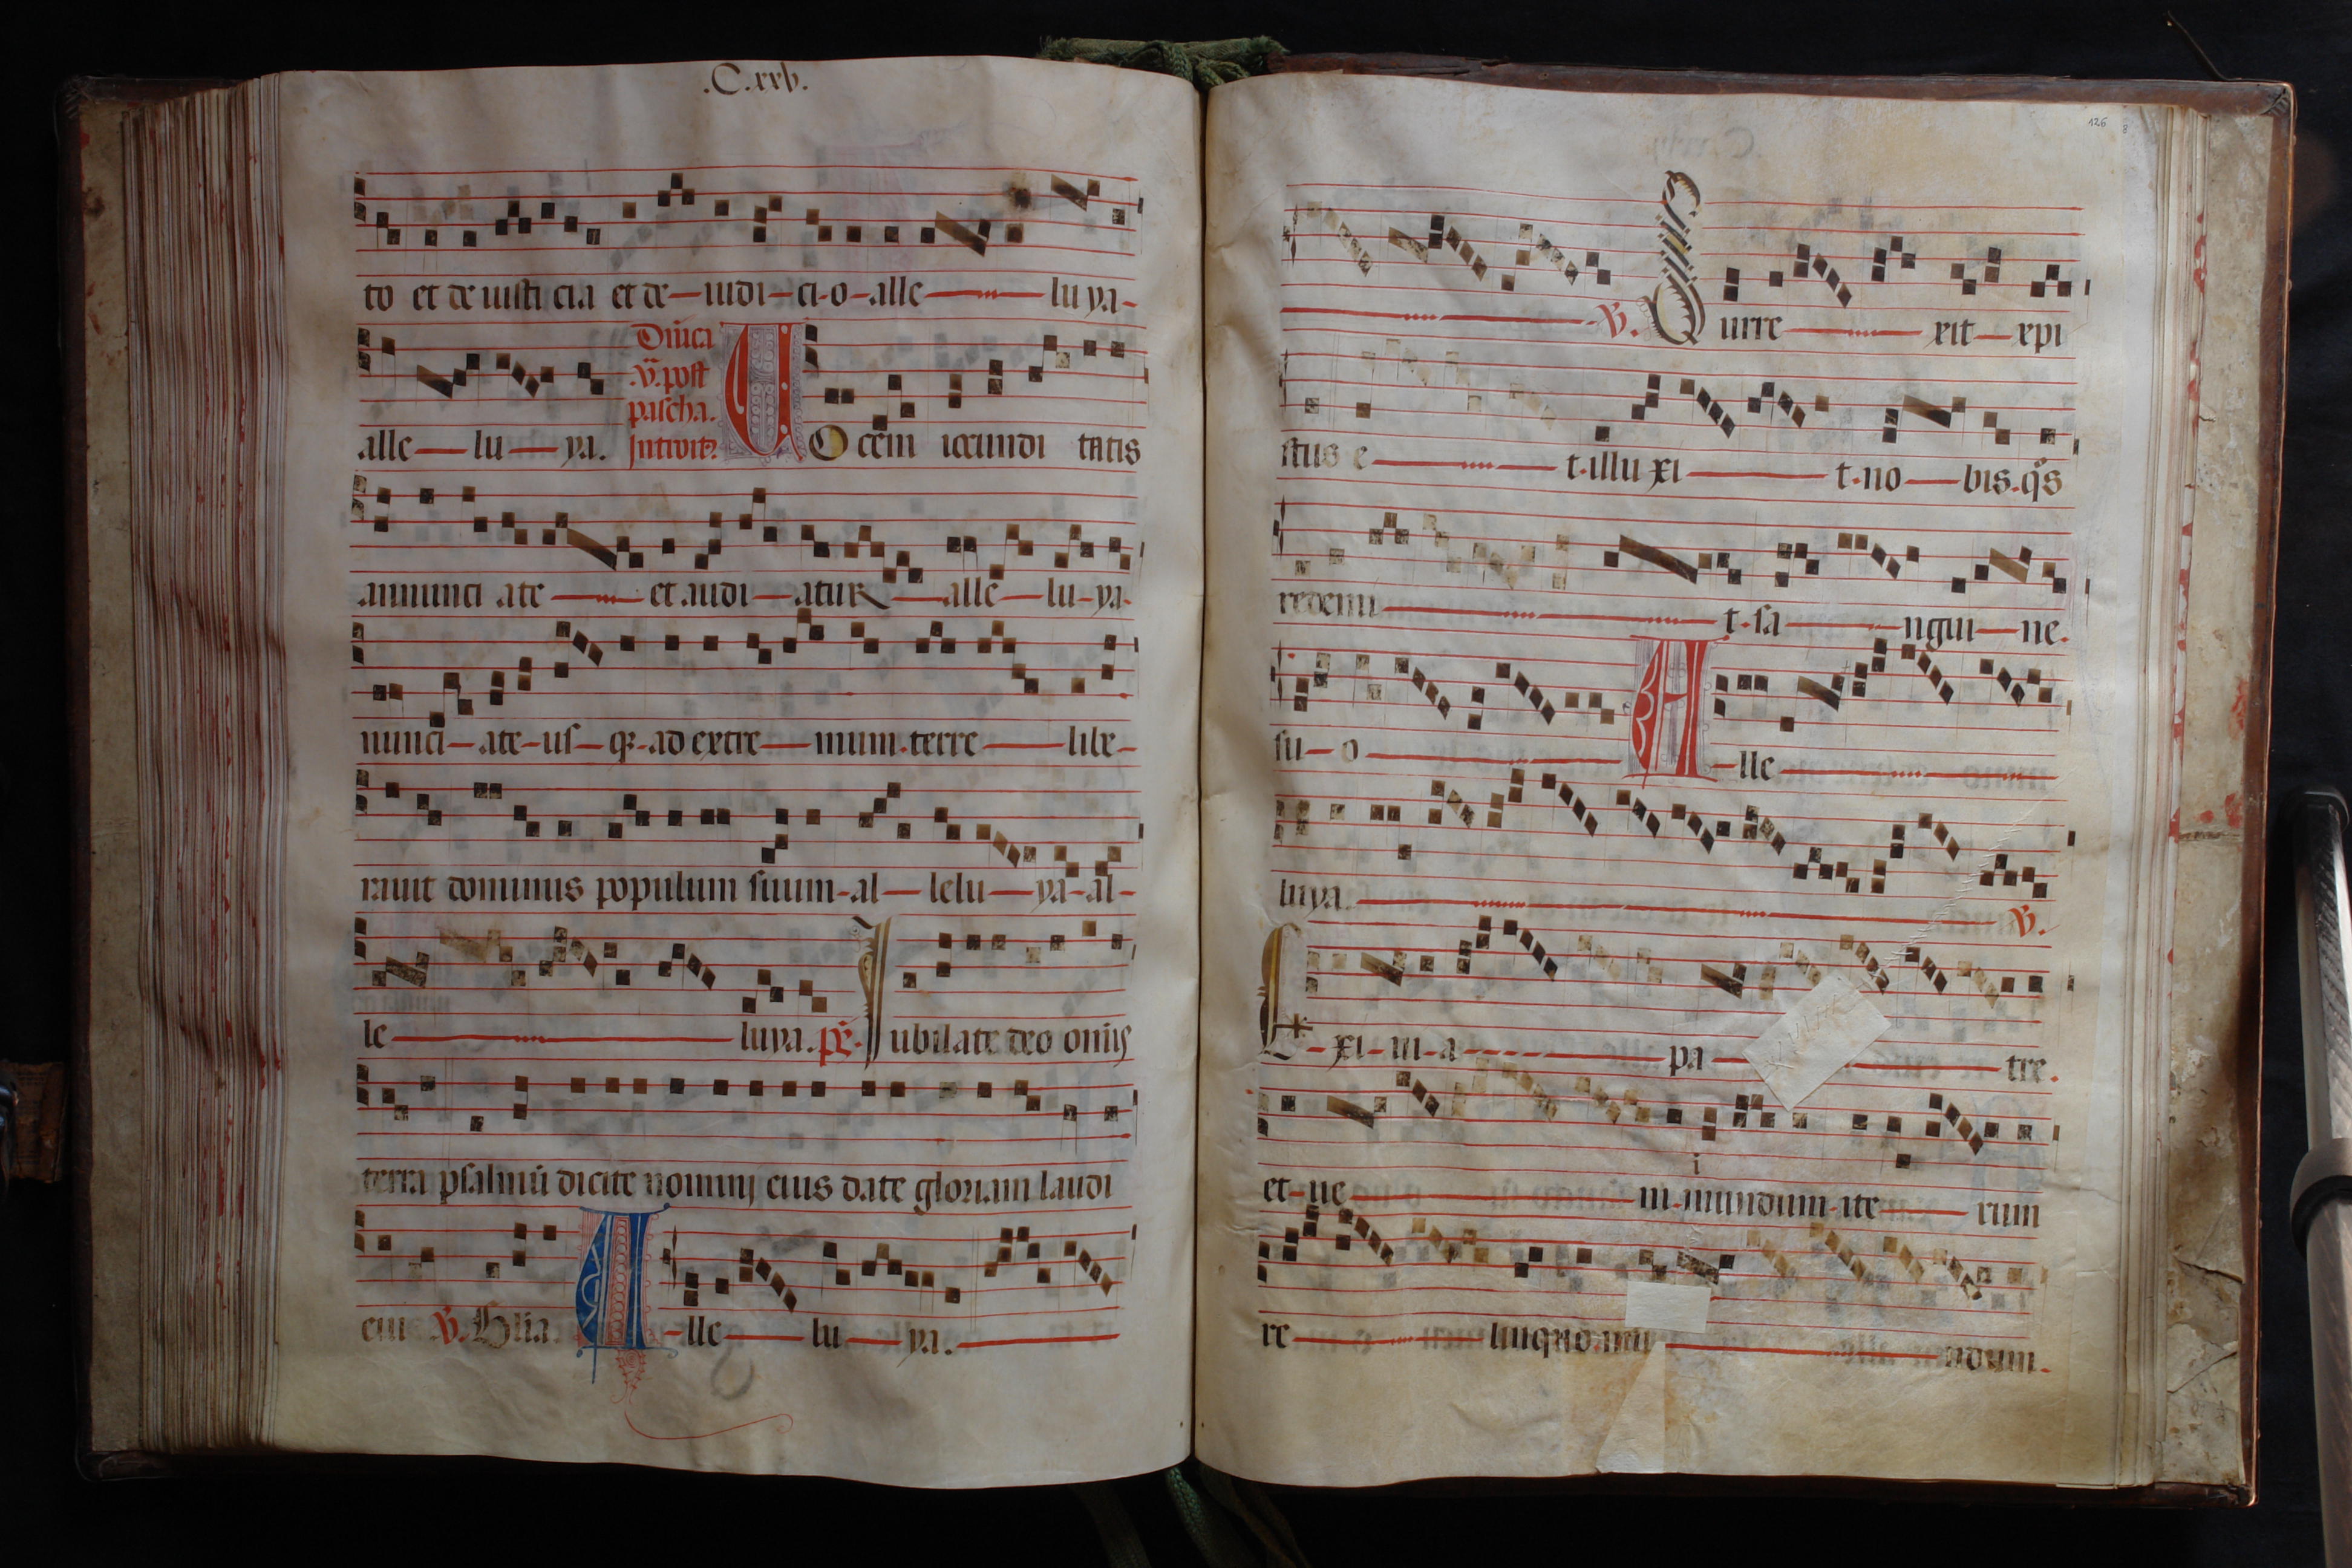 .C.xxv.
to et de iusti cia et de iudi ci o alle lu ya
alle lu ya.
Dnica
.v. post
pascha.
Introit
VOcem iocundi tatis
annunci ate et audi atur alle lu ya
nunci ate us q ad extre mum terre libe
rauit dominus populum suum al lelu ya al
le luya. ps. Iubilate deo omis
terra psalmū dicite nomini eius date gloriam laudi
eiu V. Glia. Alle lu ya.
126
V. Surre xit xpi
stus e t illu xi t no bis qs
redemi t sa ngui ne.
su o Alle
luya. V.
Exi ui a pa tre.
et ue ni
i
n mundum ite rum
re linquo mu ndum